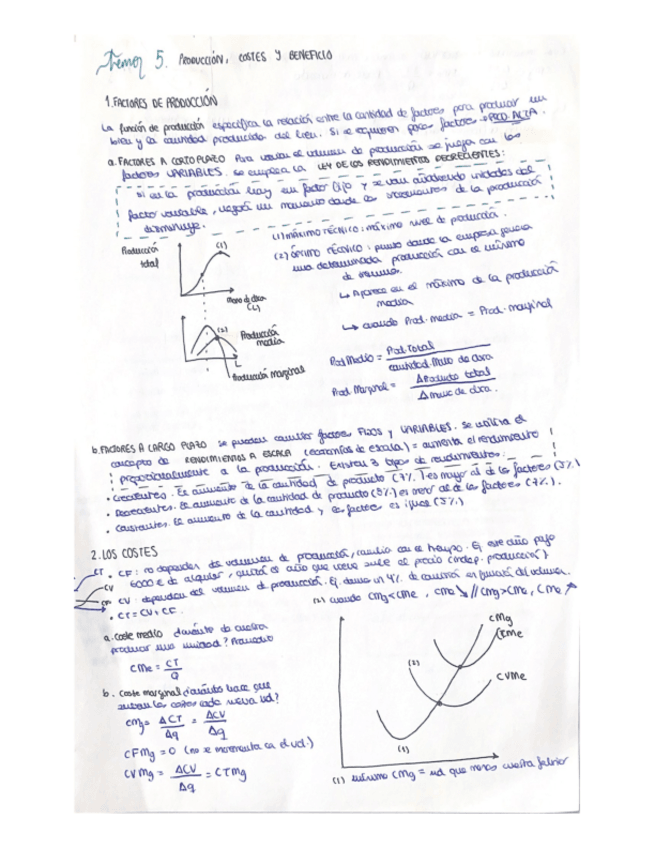 Tema 5. PRODUCCIÓN, COSTES Y BENEFICIO
1. FACTORES DE PRODUCCIÓN
La función de producción especifica la relación entre la cantidad de factores para producir un
bien y la cantidad producida del bien. Si se requieren pocos factores → PROD. ALTA.
a. FACTORES A CORTO PLAZO Para variar el volumen de producción se juega con los
factores VARIABLES. Se emplea la LEY DE LOS RENDIMIENTOS DECRECIENTES:
Si en la producción hay un factor fijo y se van añadiendo unidades del
factor variable, llegará un momento donde los incrementos de la producción
disminuye.
(1) MÁXIMO TÉCNICO: máximo nivel de producción.
(2) ÓPTIMO TÉCNICO: punto donde la empresa genera
una determinada producción con el mínimo
de insumos.
↳ Aparece en el máximo de la producción
media
↳ cuando Prod. media = Prod. marginal
Producción
total
(1)
mano de obra
(L)
(2)
Producción
media
L
Producción marginal
Prod Medio = Prod. Total / cantidad Mano de obra
Prod. Marginal = Δ Producto total / Δ mano de obra.
b. FACTORES A LARGO PLAZO se pueden cambiar factores FIJOS y VARIABLES. Se utiliza el
concepto de RENDIMIENTOS A ESCALA (economías de escala) = aumenta el rendimiento
proporcionalmente a la producción. Existen 3 tipos de rendimientos:
• Crecientes. El aumento de la cantidad de producto (7%) es mayor al de los factores (5%)
• Decrecientes. El aumento de la cantidad de producto (5%) es menor al de los factores (7%).
• Constantes. El aumento de la cantidad y los factores es igual (5%)
2. LOS COSTES
CT
CV
CF
• CF: no dependen del volumen de producción, cambia con el tiempo. Ej este año pago
6000 € de alquiler, quizás el año que viene sube el precio (indep. producción)
• CV: dependen del volumen de producción. Ej. damos un 4% de comisión en función del volumen.
• CT = CV + CF.
(2) cuando CMg < CMe, CMe ↘ // CMg > CMe, CMe ↗
a. Coste medio ¿cuánto me cuesta
producir una unidad? Promedio
CMe = CT / Q
b. Coste marginal ¿cuánto hace que
suban los costes cada nueva ud?
CMg = ΔCT / Δq = ΔCV / Δq
CFMg = 0 (no se incrementa en el ud.)
CVMg = ΔCV / Δq = CTMg
CMg
CTMe
CVMe
(2)
(1)
(1) mínimo CMg = ud que menos cuesta fabricar